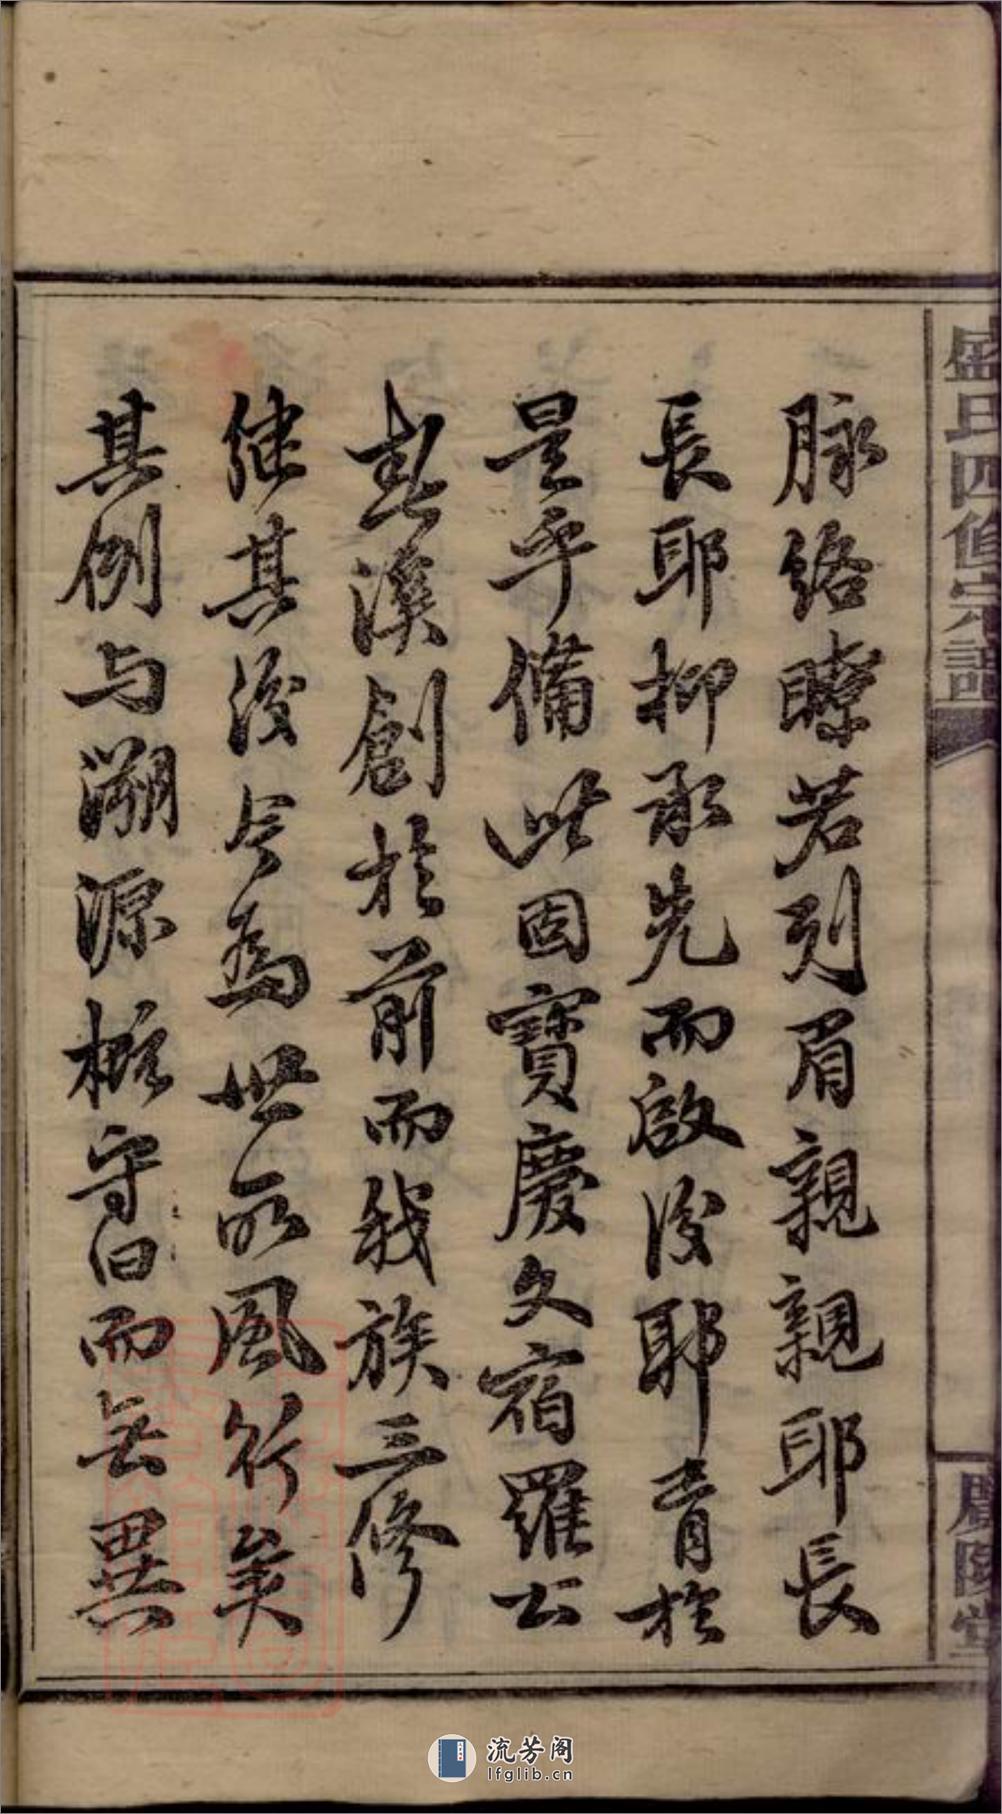 盛氏四修宗譜
廣陵堂
脉絡瞭若列眉親親耶長
長耶抑承先而啟後耶胥於
是乎備此固寶慶文宿羅公
春溪創於前而我族三修
繼其後今為世所風行矣
其例与溯源概守旧而無異
流芳阁
lfglib.cn